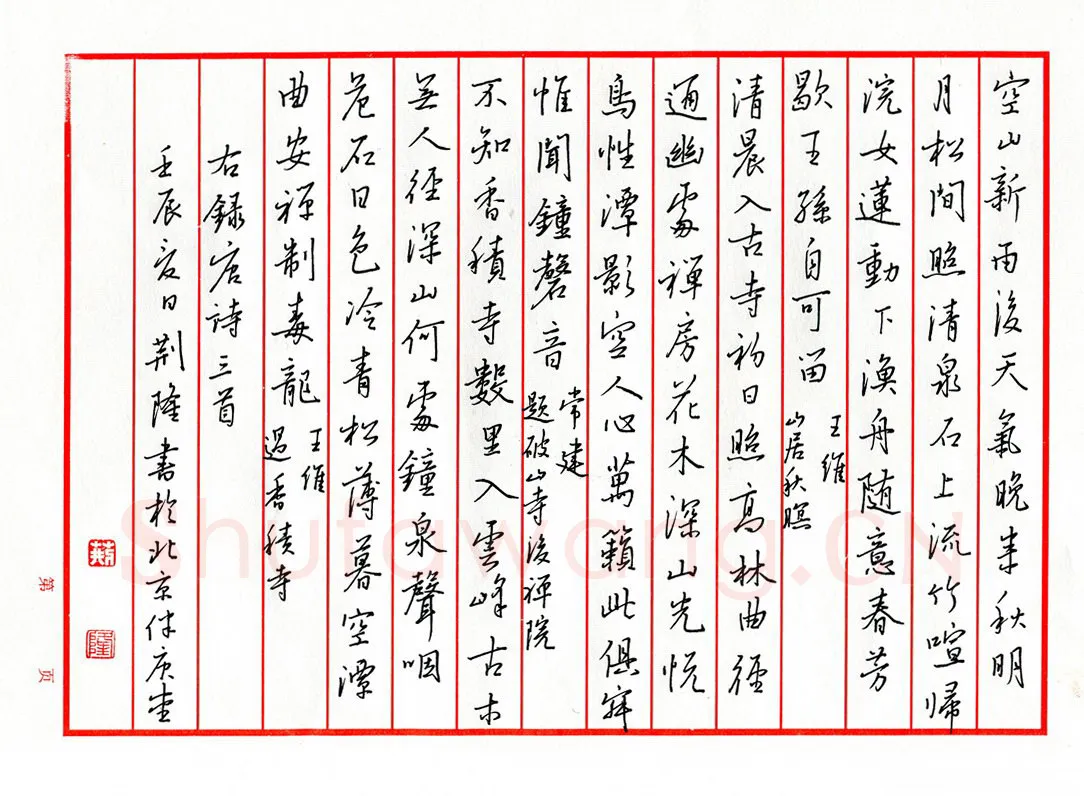 空山新雨後天氣晚来秋明
月松間照清泉石上流竹喧歸
浣女蓮動下漁舟随意春芳
歇王孫自可留
王維
山居秋暝
清晨入古寺初日照高林曲徑
通幽處禪房花木深山光悦
鳥性潭影空人心萬籟此俱寂
惟聞鐘磬音
常建
題破山寺後禪院
不知香積寺數里入雲峰古木
無人徑深山何處鐘泉聲咽
危石日色冷青松薄暮空潭
曲安禪制毒龍
王維
過香積寺
右錄唐詩三首
壬辰夏日荆隆書於北京伴庚堂
荆
隆
第 页
Shufawang.CN